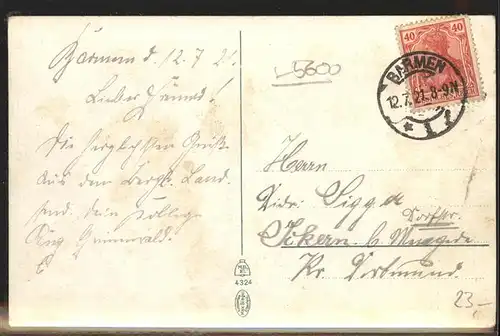 Barmen d. 12.7.21.
Lieber Freund!
Die herzlichsten Grüße
aus dem Bergl. Land
send. dein Kollege
Aug Grünewald.
5600
40 40
BARMEN
12.7.21. 8-9N
* 1
Herrn
Sigge
Dorfstr.
Ickern b Mengede
Kr. Dortmund
4324
23-